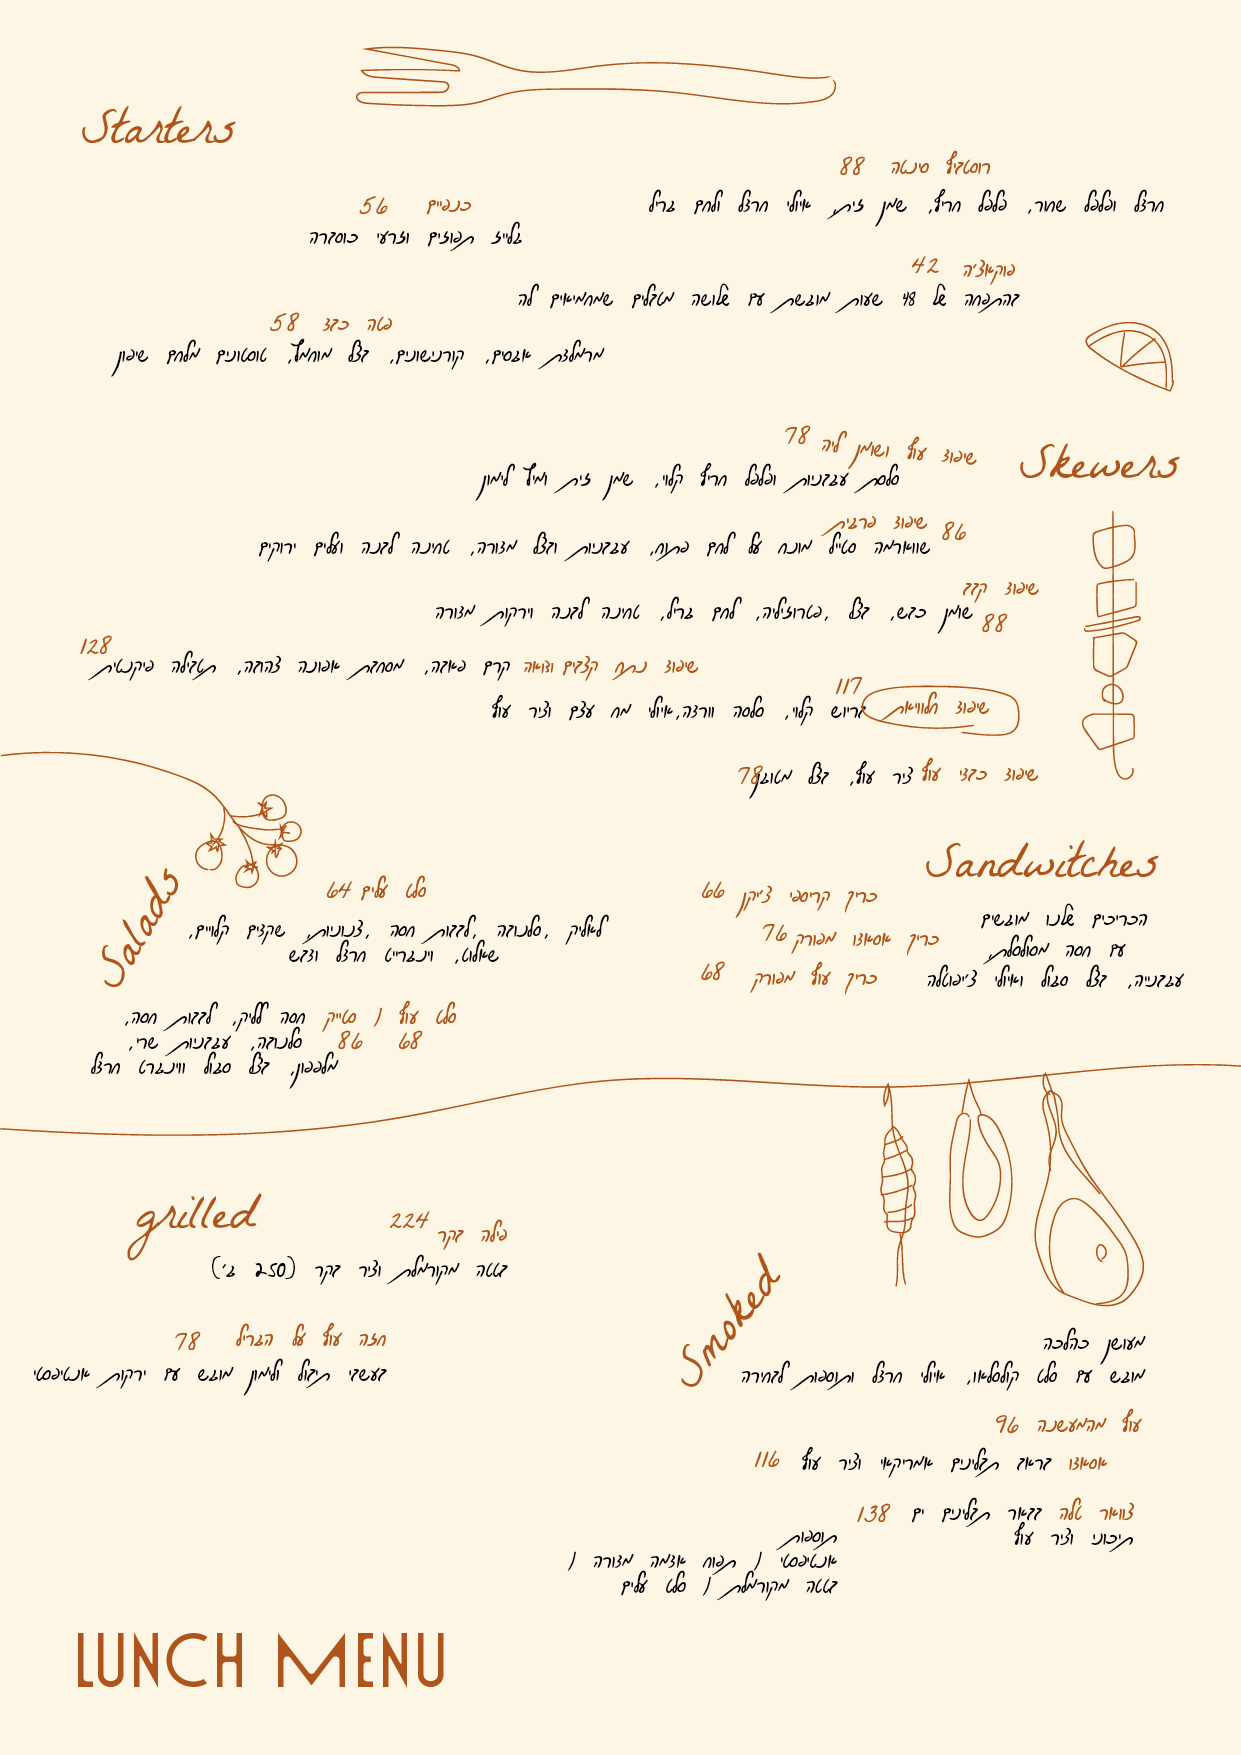 Starters
רוסטביף סינטה 88
חרדל ופלפל שחור, פלפל חריף, שמן זית, איולי חרדל ולחם בריל
כנפיים 56
גלייז תפוזים וזרעי כוסברה
פוקאצ'ה 42
בהתפחה של 48 שעות מוגשת עם שלושה מטבלים שמחמיאים לה
פטה כבד 58
מרמלדת אגסים, קורנישונים, בצל מוחמץ, טוסטונים מלחם שיפון
Skewers
שיפוד עוף ושומן ליה 78
סלסת עגבניות ופלפל חריף קלוי, שמן זית ומיץ לימון
שיפוד פרגית 86
שווארמה סטייל מונח על לחם פתוח, עגבניות ובצל מדורה, טחינה לבנה ועלים ירוקים
שיפוד קבב 88
שומן כבש, בצל, פטרוזיליה, לחם בריל, טחינה לבנה וירקות מדורה
שיפוד נתח קצבים וצוואה קרם פאבה, מסחבת אפונה צהובה, תטבילה פיקנטית 128
שיפוד חלוויאת בריוש קלוי, סלסה וורדה, איולי מח עצם וציר עוף 117
שיפוד כבדי עוף ציר עוף, בצל מטוגן 78
Salads
סלט עלים 64
לאליק, סלנובה, לבבות חסה, צנוניות, שקדים קלויים,
שאלוט, וינגרייט חרדל ודבש
סלט עוף / סטייק חסה לליק, לבבות חסה,
68 86 סלנובה, עגבניות שרי,
מלפפון, בצל סגול ווינגרט חרדל
Sandwitches
הכריכים שלנו מוגשים
עם חסה מסולסלת,
עגבנייה, בצל סגול ואיולי צ'יפוטלה
כריך קריספי צ'יקן 66
כריך אסאדו מפורק 76
כריך עוף מפורק 68
grilled
פילה בקר 224
בטטה מקורמלת וציר בקר (250 ג')
חזה עוף על הגריל 78
בעשבי תיבול ולימון מוגש עם ירקות אנטיפסטי
Smoked
מעושן כהלכה
מוגש עם סלט קולסלאו, איולי חרדל ותוספות לבחירה
עוף מהמעשנה 96
אסאדו בראב תבלינים אמריקאי וציר עוף 116
צוואר טלה בבאר תבלינים ים 138
תיכוני וציר עוף
תוספות
אנטיפסטי / תפוח אדמה מדורה /
בטטה מקורמלת / סלט עלים
LUNCH MENU